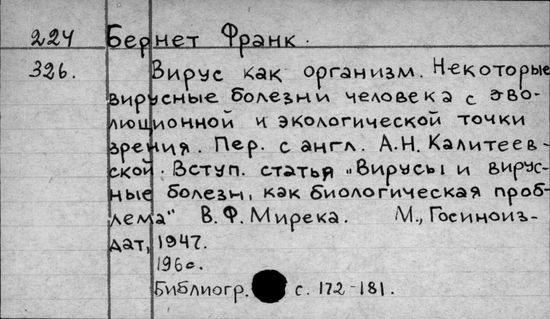 224 Бернет Франк.
326. Вирус как организм. Некоторые
вирусные болезни человека с эво-
люционной и экологической точки
зрения. Пер. с англ. А.Н. Калитеев-
ской. Вступ. статья „Вирусы и вирус-
ные болезн, как биологическая проб-
лема" В.Ф. Мирека. М., Госиноиз-
дат, 1947.
196с.
Библиогр. с. 172-181.